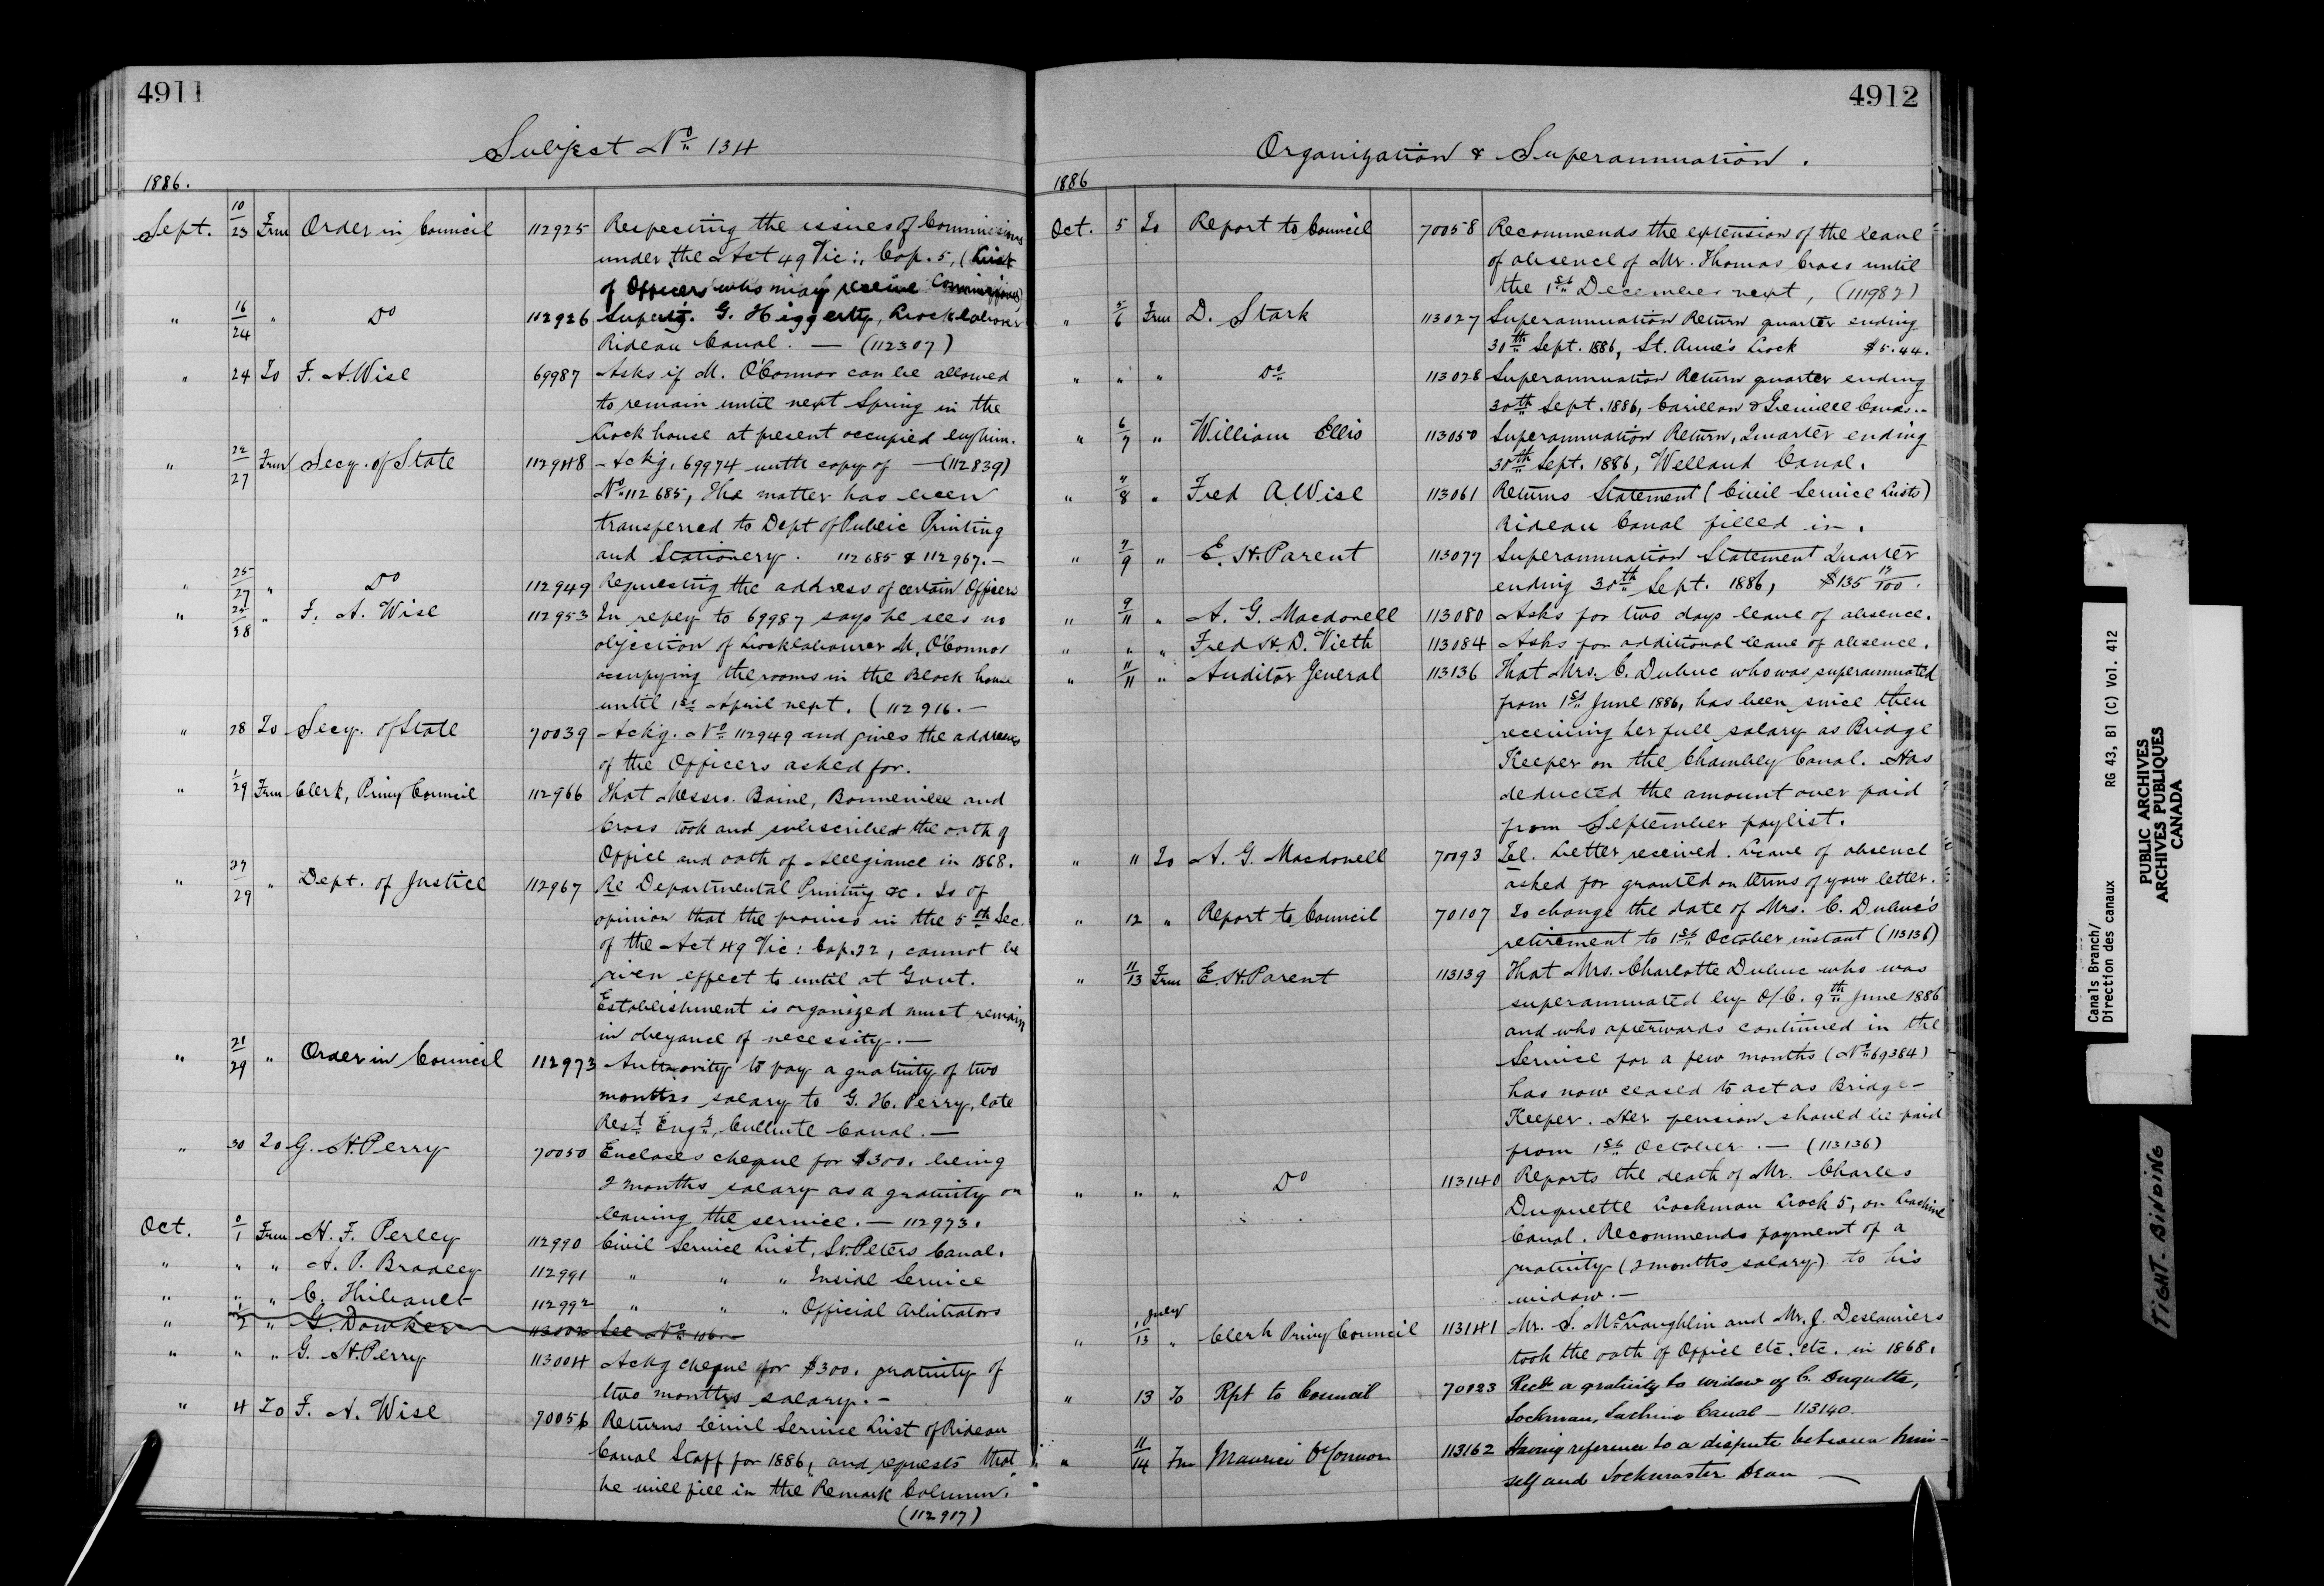 4911
Subject No 134
1886.
Sept. 10/23 From Order in Council 112925 Respecting the issues of Commissions
under the Act 49 Vic:, Cap. 5, (List
of Officers who may receive Commissions)
" 16/24 " Do 112926 Superg. G. Higgerty, Locklabourer
Rideau Canal. — (112307)
" 24 To F. A. Wise 69987 Asks if M. O'Connor can be allowed
to remain until next Spring in the
Lock house at present occupied by him.
" 22/27 From Secy. of State 112948 Ackg. 69974 with copy of — (112839)
No 112685, The matter has been
transferred to Dept of Public Printing
and Stationery. 112685 & 112967. —
" 25/27 " Do 112949 Requesting the address of certain Officers
" 25/28 " F. A. Wise 112953 In reply to 69987 says he sees no
objection of Locklabourer M. O'Connor
occupying the rooms in the Block house
until 1st April next. (112916. —
" 28 To Secy. of State 70039 Ackg. No 112949 and gives the addresses
of the Officers asked for.
" 1/29 From Clerk, Privy Council 112966 That Messrs. Baine, Bonneville and
Cross took and subscribed the oath of
Office and oath of Allegiance in 1868.
" 27/29 " Dept. of Justice 112967 Re Departmental Printing &c. Is of
opinion that the proviso in the 5th Sec.
of the Act 49 Vic: Cap. 22, cannot be
given effect to until at Govt.
Establishment is organized must remain
in obeyance of necessity. —
" 21/29 " Order in Council 112973 Authority to pay a gratuity of two
months salary to G. H. Perry, late
Rest Engr, Culbute Canal. —
" 30 To G. H. Perry 70050 Encloses cheque for $300. being
2 months salary as a gratuity on
leaving the service. — 112973.
Oct. 0/1 From H. F. Perley 112990 Civil Service List, St. Peters Canal.
" " " A. P. Bradley 112991 " " " Inside Service
" " " C. Thibault 112992 " " " Official Arbitrators
" 1/2 " G. Dowker 113002 See No 106 —
" " " G. H. Perry 113004 Ackg cheque for $300. gratuity of
two months salary. —
" 4 To F. A. Wise 70056 Returns Civil Service List of Rideau
Canal Staff for 1886, and requests that
he will fill in the Remark Column.
(112917)
4912
Organization & Superannuation.
1886
Oct. 5 To Report to Council 70058 Recommends the extension of the leave
of absence of Mr. Thomas Cross until
the 1st December next, (111982)
" 5/6 From D. Stark 113027 Superannuation Return quarter ending
30th Sept. 1886, St. Anne's Lock $5.44.
" " " Do 113028 Superannuation Return quarter ending
30th Sept. 1886, Carillon & Grenville Canas. -
" 6/7 " William Ellis 113050 Superannuation Return, Quarter ending
30th Sept. 1886, Welland Canal.
" 7/8 " Fred A Wise 113061 Returns Statement (Civil Service Lists)
Rideau Canal filled in.
" 7/9 " E. H. Parent 113077 Superannuation Statement Quarter
ending 30th Sept. 1886, $135 13/100.
" 9/11 " A. G. Macdonell 113080 Asks for two days leave of absence.
" " " Fred H. D. Vieth 113084 Asks for additional leave of absence.
" 11/11 " Auditor General 113136 That Mrs. C. Dubuc who was superannuated
from 1st June 1886, has been since then
receiving her full salary as Bridge
Keeper on the Chambly Canal. Has
deducted the amount over paid
from September paylist.
" 11 To A. G. Macdonell 70093 Tel. Letter received. Leave of absence
asked for granted on terms of your letter.
" 12 " Report to Council 70107 To change the date of Mrs. C. Dubuc's
retirement to 1st October instant (113136)
" 11/13 From E. H. Parent 113139 That Mrs. Charlotte Dubuc who was
superannuated by O/C. 9th June 1886
and who afterwards continued in the
Service for a few months (No 69384)
has now ceased to act as Bridge-
Keeper. Her pension should be paid
from 1st October. — (113136)
" " " Do 113140 Reports the death of Mr. Charles
Duquette Lockman Lock 5, on Lachine
Canal. Recommends payment of a
gratuity (2 months salary) to his
widow. —
" 1 July/13 " Clerk Privy Council 113141 Mr. S. McLaughlin and Mr. J. Deslauriers
took the oath of Office etc. etc. in 1868.
" 13 To Rpt to Council 70123 Rects a gratuity to widow of C. Duquette,
Lockman, Lachine Canal — 113140.
" 11/14 Fm Maurice O'Connor 113162 Having reference to a dispute between him-
self and Lockmaster Dean —
Canals Branch/ RG 43, B1 (C) Vol. 412
Direction des canaux
PUBLIC ARCHIVES
ARCHIVES PUBLIQUES
CANADA
TIGHT BINDING